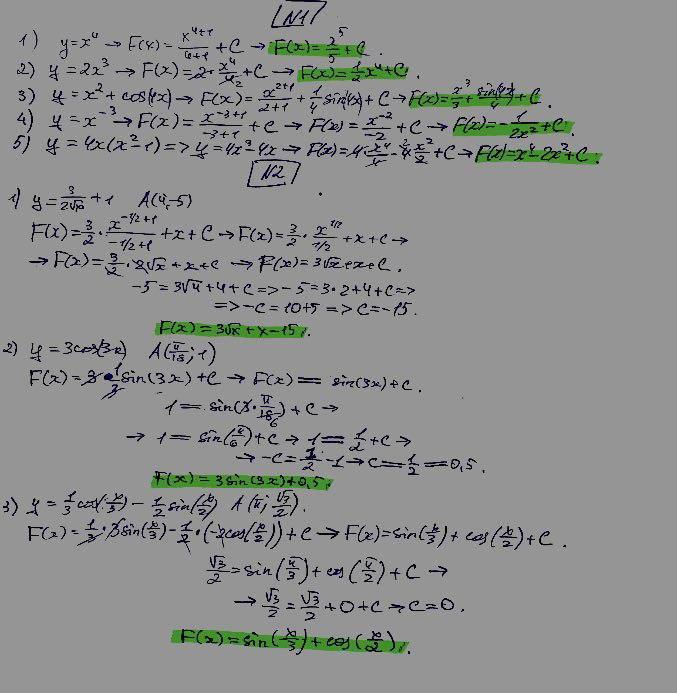 N1
1) y=x⁴ → F(x)= x⁴⁺¹/4+1 + C → F(x)= x⁵/5 + C.
2) y = 2x³ → F(x)=2·x⁴/4₂ + C → F(x)=1/2 x⁴+C.
3) y=x²+cos(4x) → F(x)= x²⁺¹/2+1 + 1/4 sin(4x)+C → F(x)= x³/3 + sin(4x)/4 + C.
4) y=x⁻³ → F(x)= x⁻³⁺¹/-3+1 + C → F(x)= x⁻²/-2 + C → F(x)=-1/2x²+C.
5) y=4x(x²-1) => y=4x³-4x → F(x)=4·x⁴/4-4²x²/2+C → F(x)=x⁴-2x²+C.
N2
1) y=3/2√x+1 A(4;-5)
F(x)=3/2·x⁻¹/²⁺¹/-1/2+1+x+C → F(x)=3/2·x¹/²/1/2+x+C →
→ F(x)=3/2·2√x+x+C → F(x)=3√x+x+C.
-5=3√4+4+C => -5=3·2+4+C =>
=> -C=10+5 => C=-15.
F(x)=3√x+x-15.
2) y=3cos(3x) A(π/18;1)
F(x)=3·1/3sin(3x)+C → F(x)=sin(3x)+C.
1=sin(3·π/18₆)+C →
→ 1=sin(π/6)+C → 1=1/2+C →
→ -C=1/2-1 → C=1/2=0,5.
F(x)=3sin(3x)+0,5.
3) y=1/3cos(x/3)-1/2sin(x/2) A(π;√3/2).
F(x)=1/3·3sin(x/3)-1/2·(-2cos(x/2))+C → F(x)=sin(x/3)+cos(x/2)+C.
√3/2=sin(π/3)+cos(π/2)+C →
→ √3/2=√3/2+0+C → C=0.
F(x)=sin(x/3)+cos(x/2).